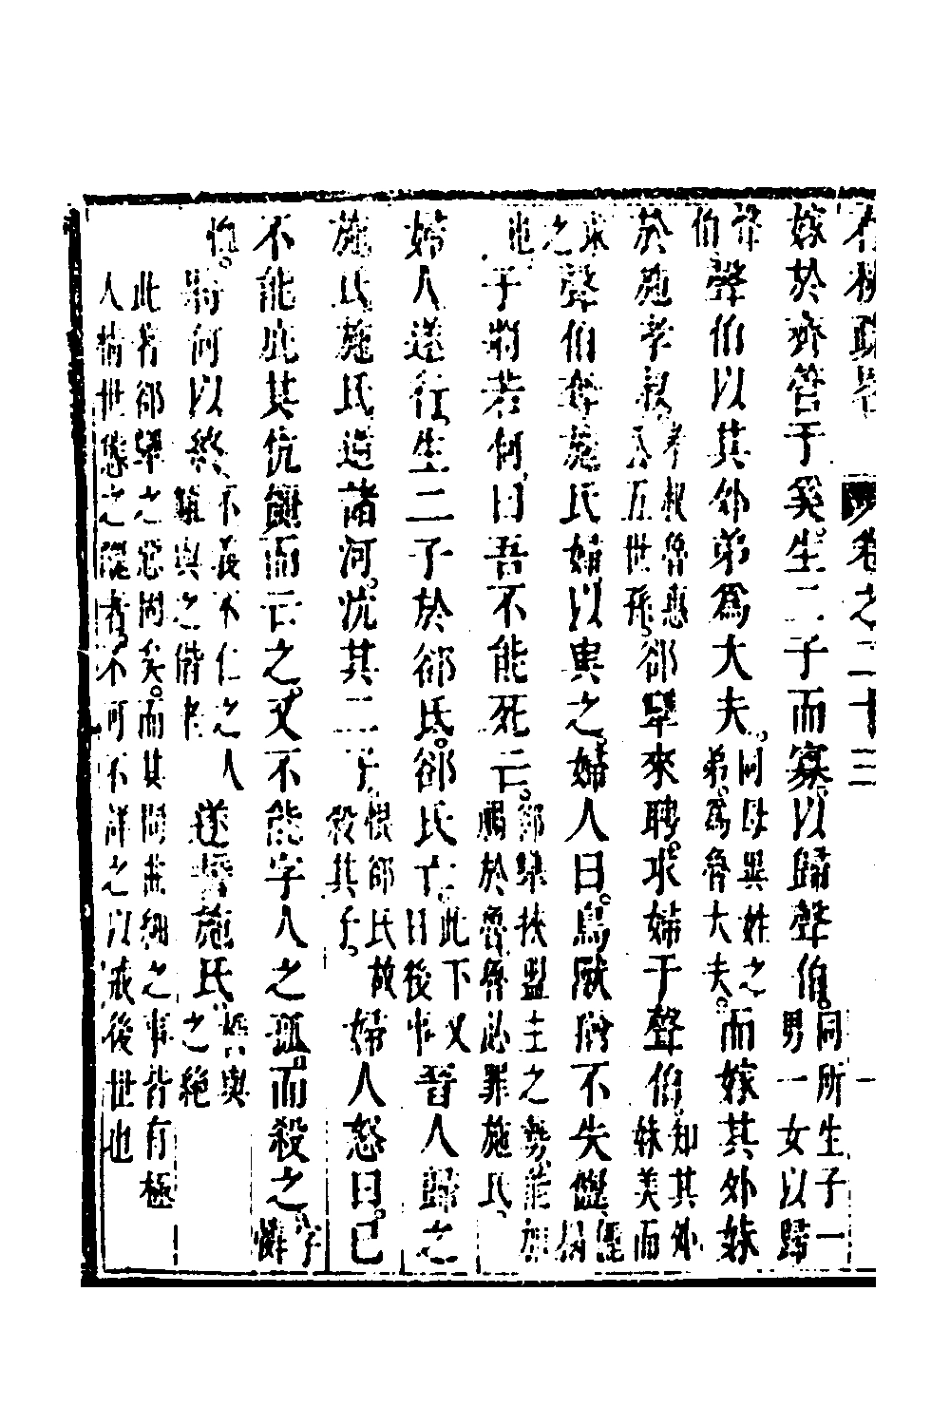 秋疏畧 卷之二十三 一
嫁於齊管于奚生二子而寡以歸聲伯同所生子一男一女以歸
聲伯聲伯以其外弟爲大夫同母異姓之弟爲魯大夫而嫁其外妹
於施孝叔孝叔魯惠公五世孫郤犨來聘求婦于聲伯知其外妹美而
求之聲伯奪施氏婦以與之婦人曰鳥獸猶不失儷儷偶
也子將若何曰吾不能死亡郤犨挾盟主之勢能加禍於魯魯必罪施氏
婦人遂行生二子於郤氏郤氏亡此下又日後事晉人歸之
施氏施氏逆諸河沉其二子恨郤氏故殺其子婦人怒曰已
不能庇其伉儷而亡之又不能字人之孤而殺之字憐
恤將何以終不義不仁之人難與之偕老遂誓施氏誓與之絕
此著郤犨之惡固矣而其間曲細之事皆有極
人情世態之隱者不可不詳之以戒後世也